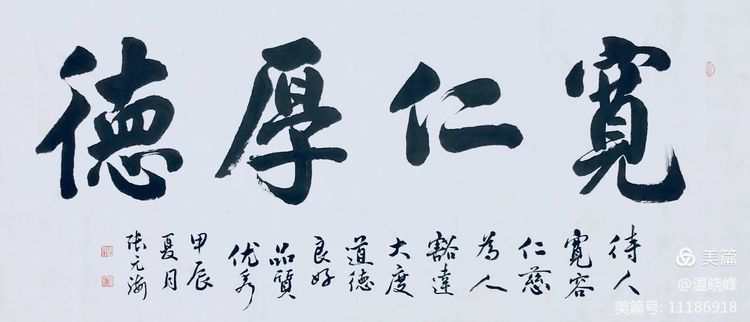 寬仁厚德
待人
寬容
仁慈
為人
豁達
大度
道德
良好
品質
优秀
甲辰
夏月
張元海
美篇
@温晓峰
美篇号: 11186918